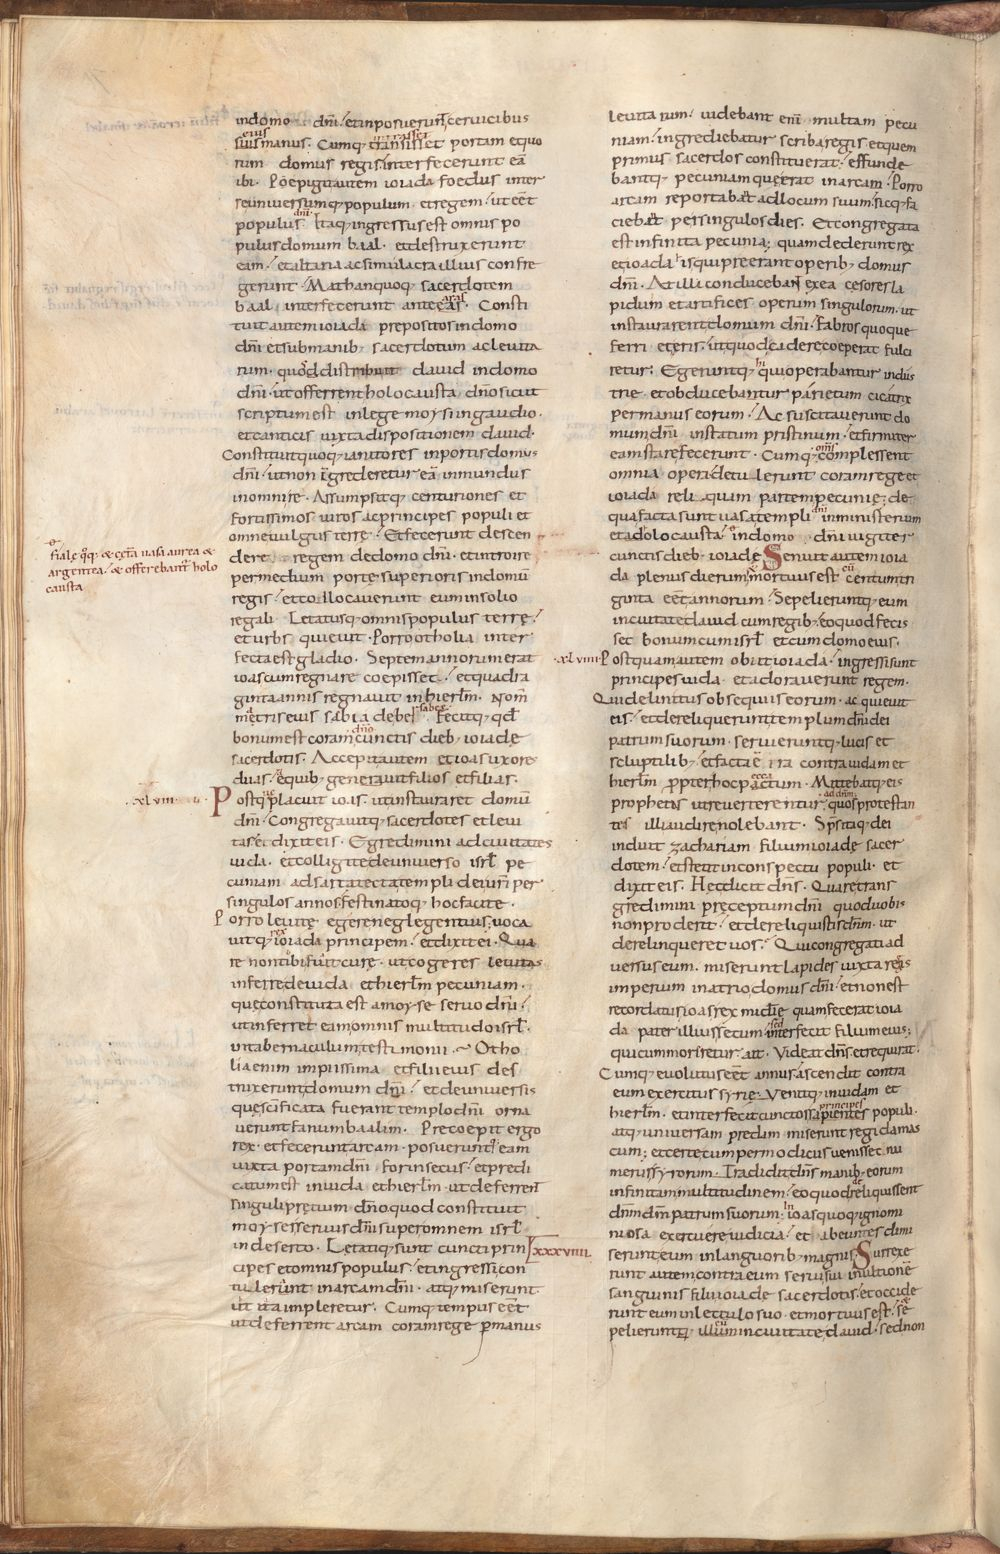 indomo dñi / etinposuerunt cervicibus
eius
suis manus. Cumq; intrasset
transisset portam equo
rum domus regis. interfecerunt eā
ibi. Pepigit autem ioiada foedus inter
se universumq; populum. et regem / ut eēt
populus dñi. Itaq; ingressus est omnis po
pulus domum baal. et destruxerunt
eam / et altaria ac simulacra illius confre
gerunt. Mathan quoq; sacerdotem
baal / interfecerunt ante aras. Consti
tuit autem ioiada prepositos in domo
dñi et sub manib; sacerdotum ac levita
rum. quos distribuit david in domo
dñi. ut offerrent holocausta. dño sicut
scriptum est in lege moysi in gaudio.
et canticis iuxta dispositionem david.
Constituit quoq; ianitores in portis domus
dñi / ut non ingrederetur eā inmundus
in omni re. Assumpsitq; centuriones et
fortissimos viros ac principes populi et
omne vulgus terrę. Et fecerunt descen
dere regem de domo dñi. et introire
per medium portę superioris in domū
regis / et collocaverunt eum in solio
regali. Letatusq; omnis populus terrę /
et urbs quievit. Porro otholia inter
fecta est gladio. Septem annorum erat
ioas cum regnare coepisset. / et quadra
ginta annis regnavit in hierlm. Nom̄
matris eius sabia de bersabee. Fecitq; qd
bonum est coram dño cunctis dieb; ioiadę
sacerdotis. Accepit autem et ioas uxore
duas / e quib; generavit filios et filias.
·xlviii· Postq̄ placuit ioas. ut instauraret domū
dñi. Congregavitq; sacerdotes et levi
tas et dixit eis. Egredimini ad civitates
iuda. et colligite de universo isrl pe
cuniam ad sartatecta templi dei vrī per
singulos annos. festinatoq; hoc facite.
Porro levitę egere neglegentius. voca
vitq; rex ioiada principem / et dixit ei. Qua
re non tibi fuit curę. ut cogeres levitas
inferre de iuda et hierlm pecuniam.
quę constituta est a moyse servo dñi /
ut inferret eam omnis multitudo isrl.
in tabernaculum testimonii. Otho
lia enim impiissima et filii eius des
truxerunt domum dñi / et de universis
quę scīficata fuerant templo dñi orna
verunt fanum baalim. Precoepit ergo
rex. et fecerunt arcam. posueruntq; eam
iuxta portam dñi forinsecus / et predi
catum est in iuda et hierlm. ut deferrent
singuli pretium dño. quod constituit
moyses servus dñi super omnem isrl
in deserto. Letatiq; sunt cuncti prin
cipes et omnis populus / et ingressi con
tulerunt in arcam dñi. atq; miserunt
ut ita impleretur. Cumq; tempus eēt
ut deferrent arcam coram rege p manus
fialę qq; & cętā vasa aurea &
argentea / & offerebant holo
causta
levitarum / videbant enī multam pecu
niam / ingrediebatur scriba regis. et quem
primus sacerdos constituerat / effunde
bantq; pecuniam quę erat in arcam. Porro
arcam reportabāt ad locum suum / sicq; fa
ciebāt per singulos dies. Et congregata
est infinita pecunia; quam dederunt rex
et ioiada his qui preerant operib; domus
dñi. At illi conducebant ex ea cesores la
pidum et artifices operum singulorum. ut
instaurarent domum dñi. Fabros quoque
ferri et eris. ut quod cadere coeperat fulci
retur: Egeruntq; hi qui operabantur indus
trie et obducebantur parietum cicatrix
per manus eorum. Ac suscitaverunt do
mum dñi in statum pristinum. et firmiter
eam stare fecerunt. Cumq; complessent
omnia opera detulerunt coram rege et
ioiada reliquam partem pecunię; de
qua facta sunt vasa templi dñi in ministerium
et ad olocausta / in domo dñi iugiter
cunctis dieb; ioiadę Senuit autem ioia
da plenus dierum mortuus est cum centum tri
ginta eēt annorum / Sepelieruntq; eum
in civitate david cum regib; eo quod fecis
set bonum cum isrl et cum domo eius.
·xlviiii· Postquam autem obiit ioiada / ingressi sunt
principes iuda. et adoraverunt regem.
Qui delinitus obsequiis eorum. acquievit
eis / et dereliquerunt templum dñi dei
patrum suorum. servieruntq; lucis et
sculptilib; et facta ē ira contra iudam et
hierlm propter hoc peccatum. Mittebatq; eis
prophetis ut reverterentur ad dñm. quos protestan
tes illi audire nolebant. Spsitaq; dei
induit zachariam filium ioiadę sacer
dotem / et stetit in conspectu populi. et
dixit eis. Hęc dicit dns. Quare trans
gredimini preceptum dñi quod vobis
non proderit / et dereliquistis dñm. ut
derelinqueret vos / Qui congregati ad
versus eum. miserunt lapides iuxta regis
imperium in atrio domus dñi / et non est
recordatus ioas rex misericordie quam fecerat ioia
da pater illius secum sed interfecit filium eius;
qui cum moreretur. ait. Videat dns et requirat.
Cumq; evolutus eēt annus ascendit contra
eum exercitus syrię. Venitq; in iudam et
hierlm. et interfecit cunctos principes
sapientes populi.
atq; universam predam miserunt regi damas
cum; et certe cum permodicus venisset nu
merus syrorum. Tradidit dns manib; eorum
infinitam multitudinem / eo quod reliquissent
dñm dm patrum suorum: In ioas quoq; ignomi
niosa exercuere iudicia / et abeuntes dimi
serunt eum in languorib; magnis Surrexe
lxxxviiii
runt autem contra eum servi sui in ultionē
sanguinis filii ioiadę sacerdotis. et occide
runt eum in lectulo suo. et mortuus est. se
pelieruntq; illum in civitate david. sed non